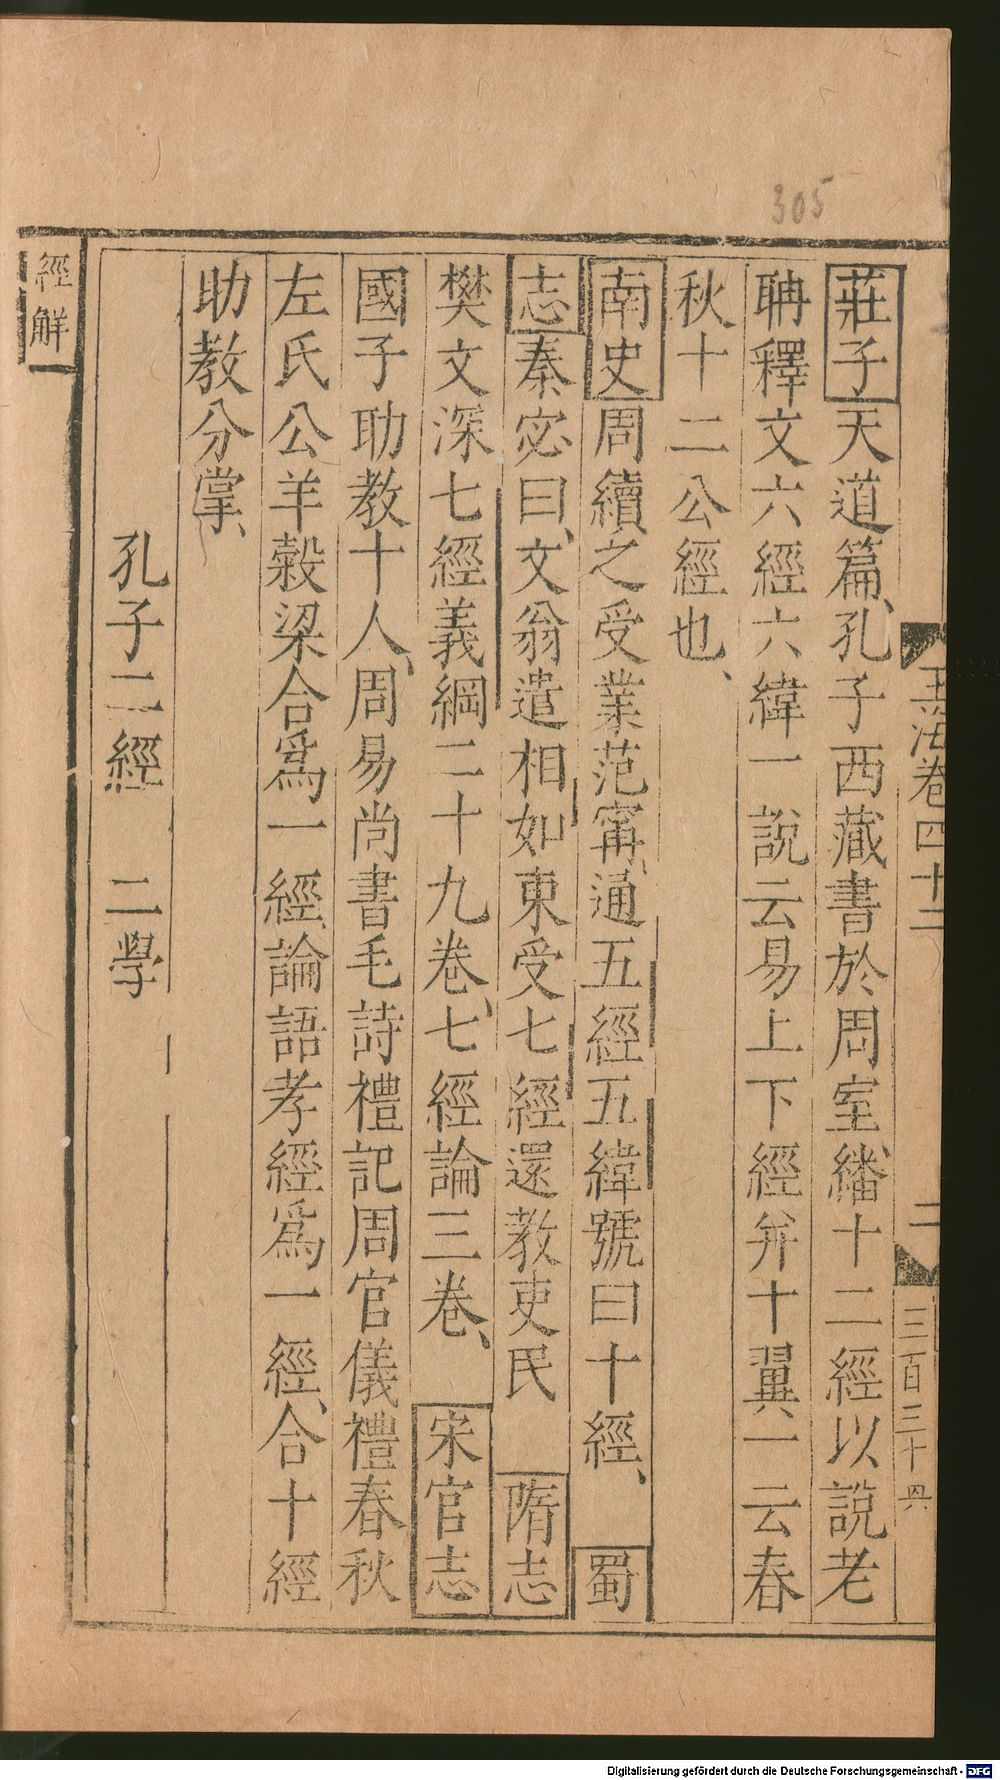 305
玉海卷四十二
二
三百三十四
莊子天道篇、孔子西藏書於周室、繙十二經以說老
聃釋文六經六緯一說云易上下經并十翼一云春
秋十二公經也、
南史周續之受業范甯、通五經五緯號曰十經、蜀
志秦宓曰、文翁遣相如東受七經還教吏民 隋志
樊文深七經義綱二十九卷、七經論三卷、 宋官志
國子助教十人、周易尚書毛詩禮記周官儀禮春秋
左氏公羊穀梁合爲一經、論語孝經爲一經、合十經
助教分掌、
孔子二經 二學
經解
Digitalisierung gefördert durch die Deutsche Forschungsgemeinschaft - DFG